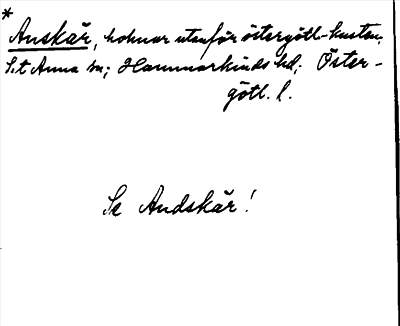 *
Anskär, holmar utanför östergötl-kusten,
S:t Anna sn; Hammarkinds hd; Öster-
götl. l.
Se Andskär!